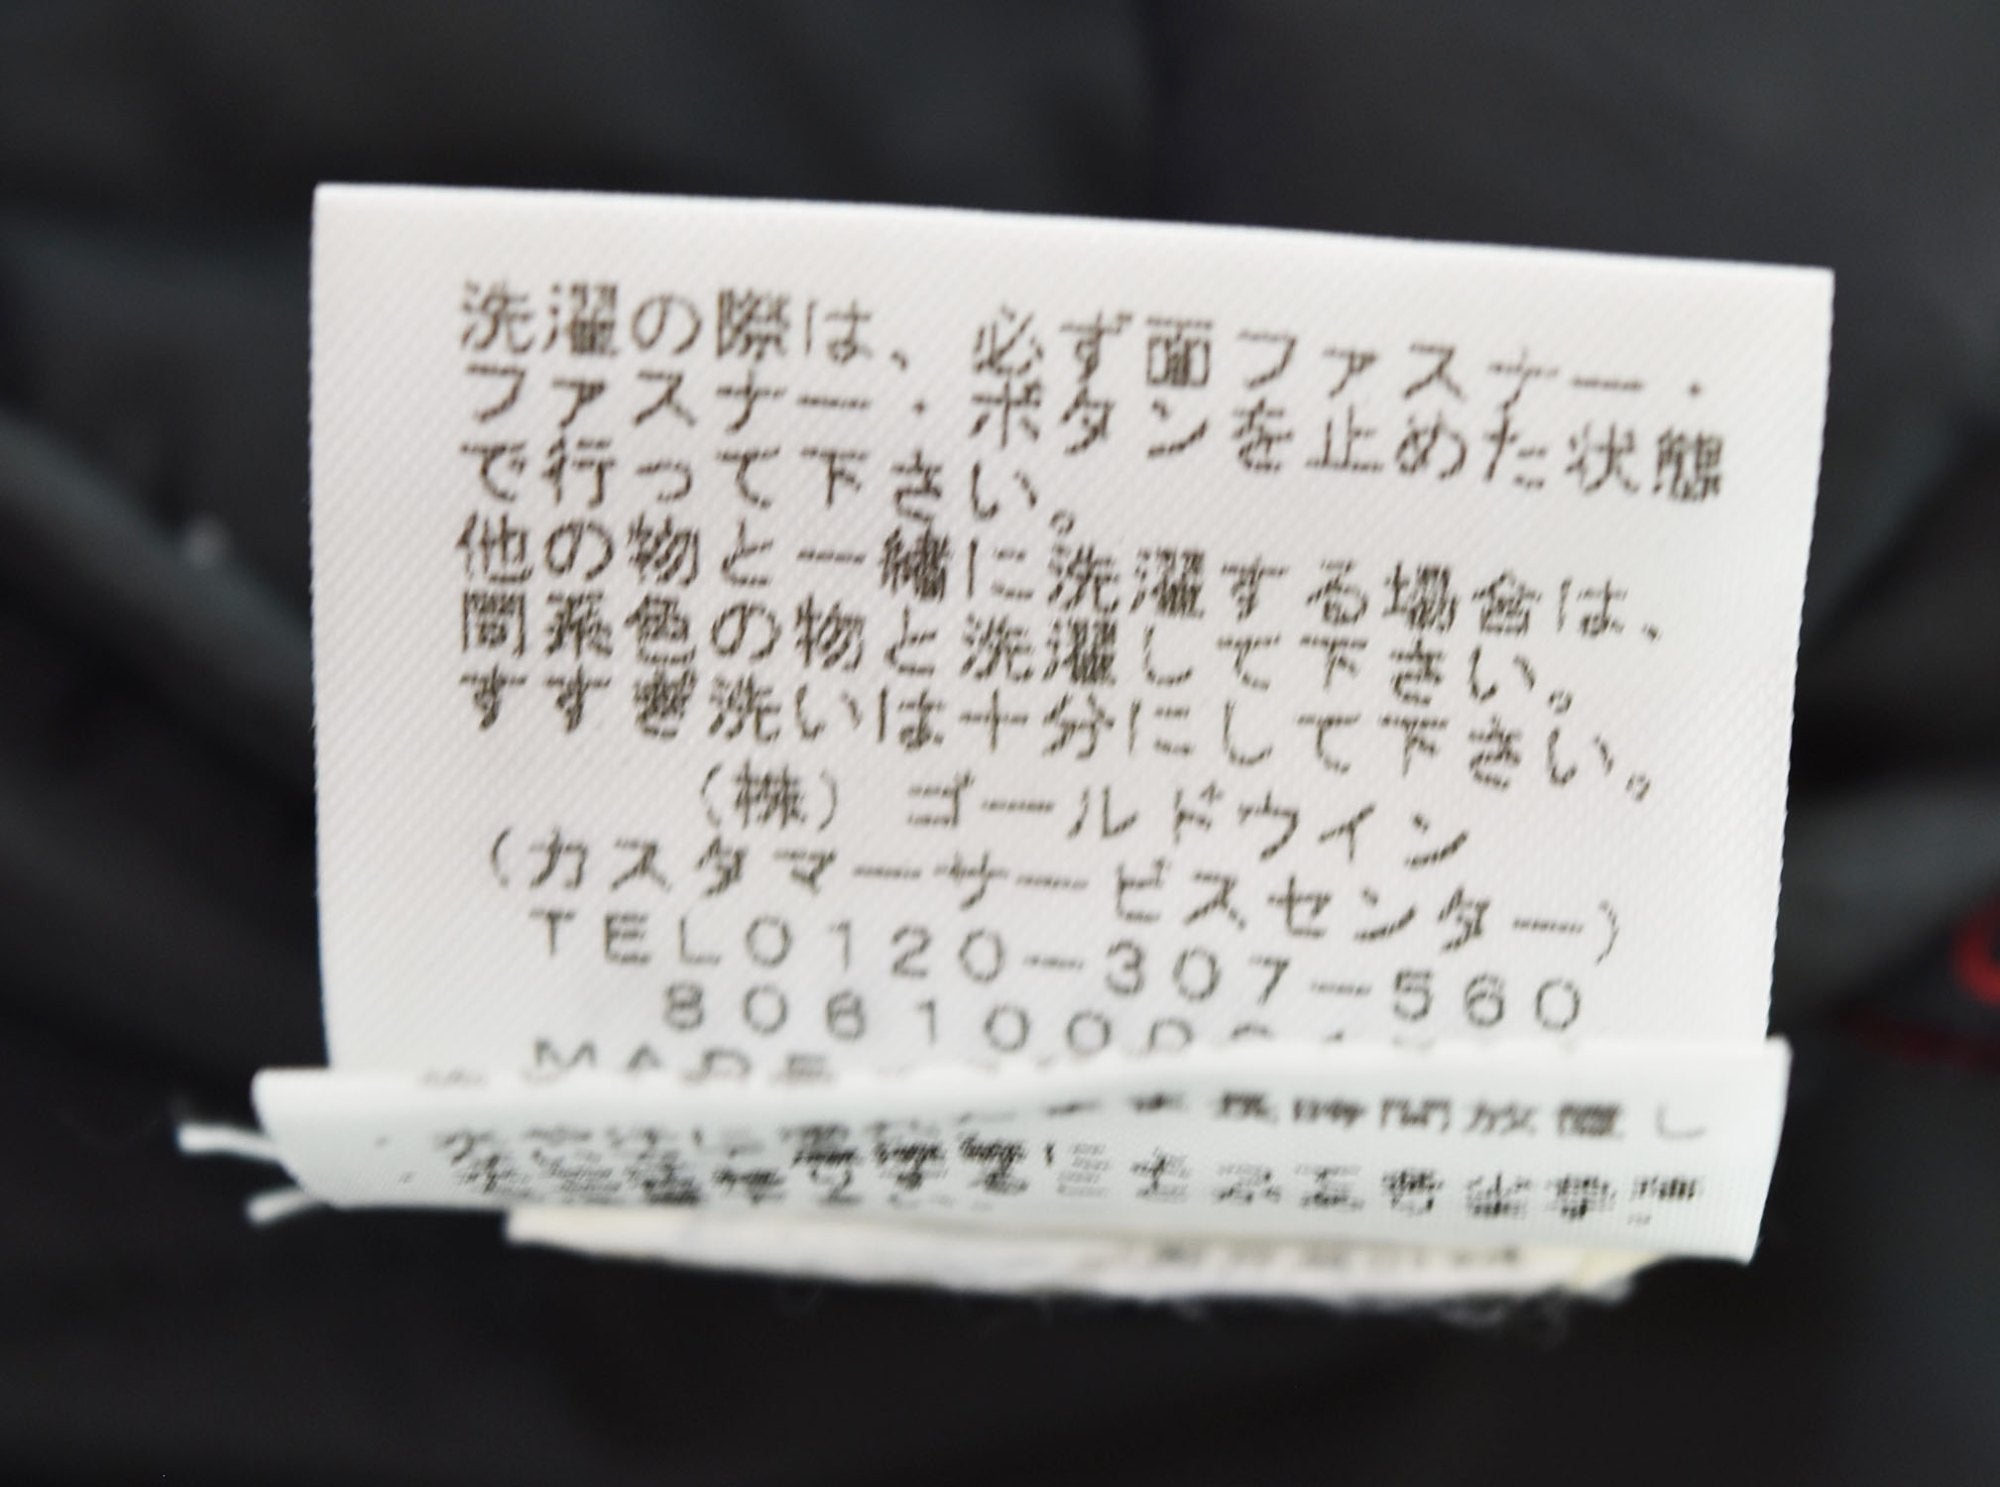 洗濯の際は、必ず面ファスナー・
ファスナー・ボタンを止めた状態
で行って下さい。
他の物と一緒に洗濯する場合は、
同系色の物と洗濯して下さい。
すすぎ洗いは十分にして下さい。
(株) ゴールドウイン
(カスタマーサービスセンター)
TEL0120-307-560
806100
MADE
長時間放置し